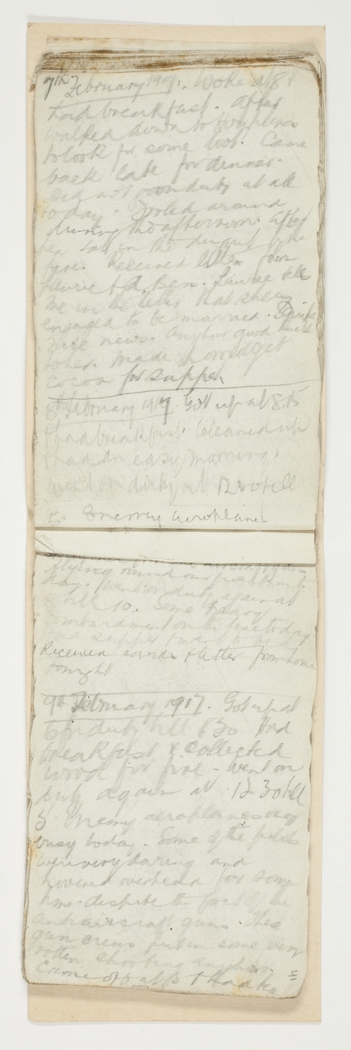 7th February 1917. Woke at 8 &
had breakfast. After
walked down to
to look for some. Came
back late for dinner.
Did not go on duty at all
today. around
during the afternoon. After
tea sat in the dugout by the
fire. Received letters from
Laurie & Ben. Laurie tells
me in the letter that shes
engaged to be married. Quite
nice news. Anyhow good luck
to her. Made porridge &
cocoa for supper
8 February 1917 Got up at 8.
& had breakfast. Cleaned up
& had an easy morning.
Went on duty at 12 till
Enemy aeroplanes
flying round our
day. Went on duty again at
till 10. Some heavy
bombardment on the line today
had supper & went to bed.
Received & letter from home
tonight
9th February 1917. Got up at
6 for duty till 8 30. Had
breakfast & collected
wood for fire. Went on
duty again at 12 30 till
5. Enemy aeroplanes very
busy today. Some of the pilots
were very daring and
overhead for some
time despite the fact of the
antiaircraft guns. The
gun crews put in some very
rotten shooting anyhow.
Came off at & had tea